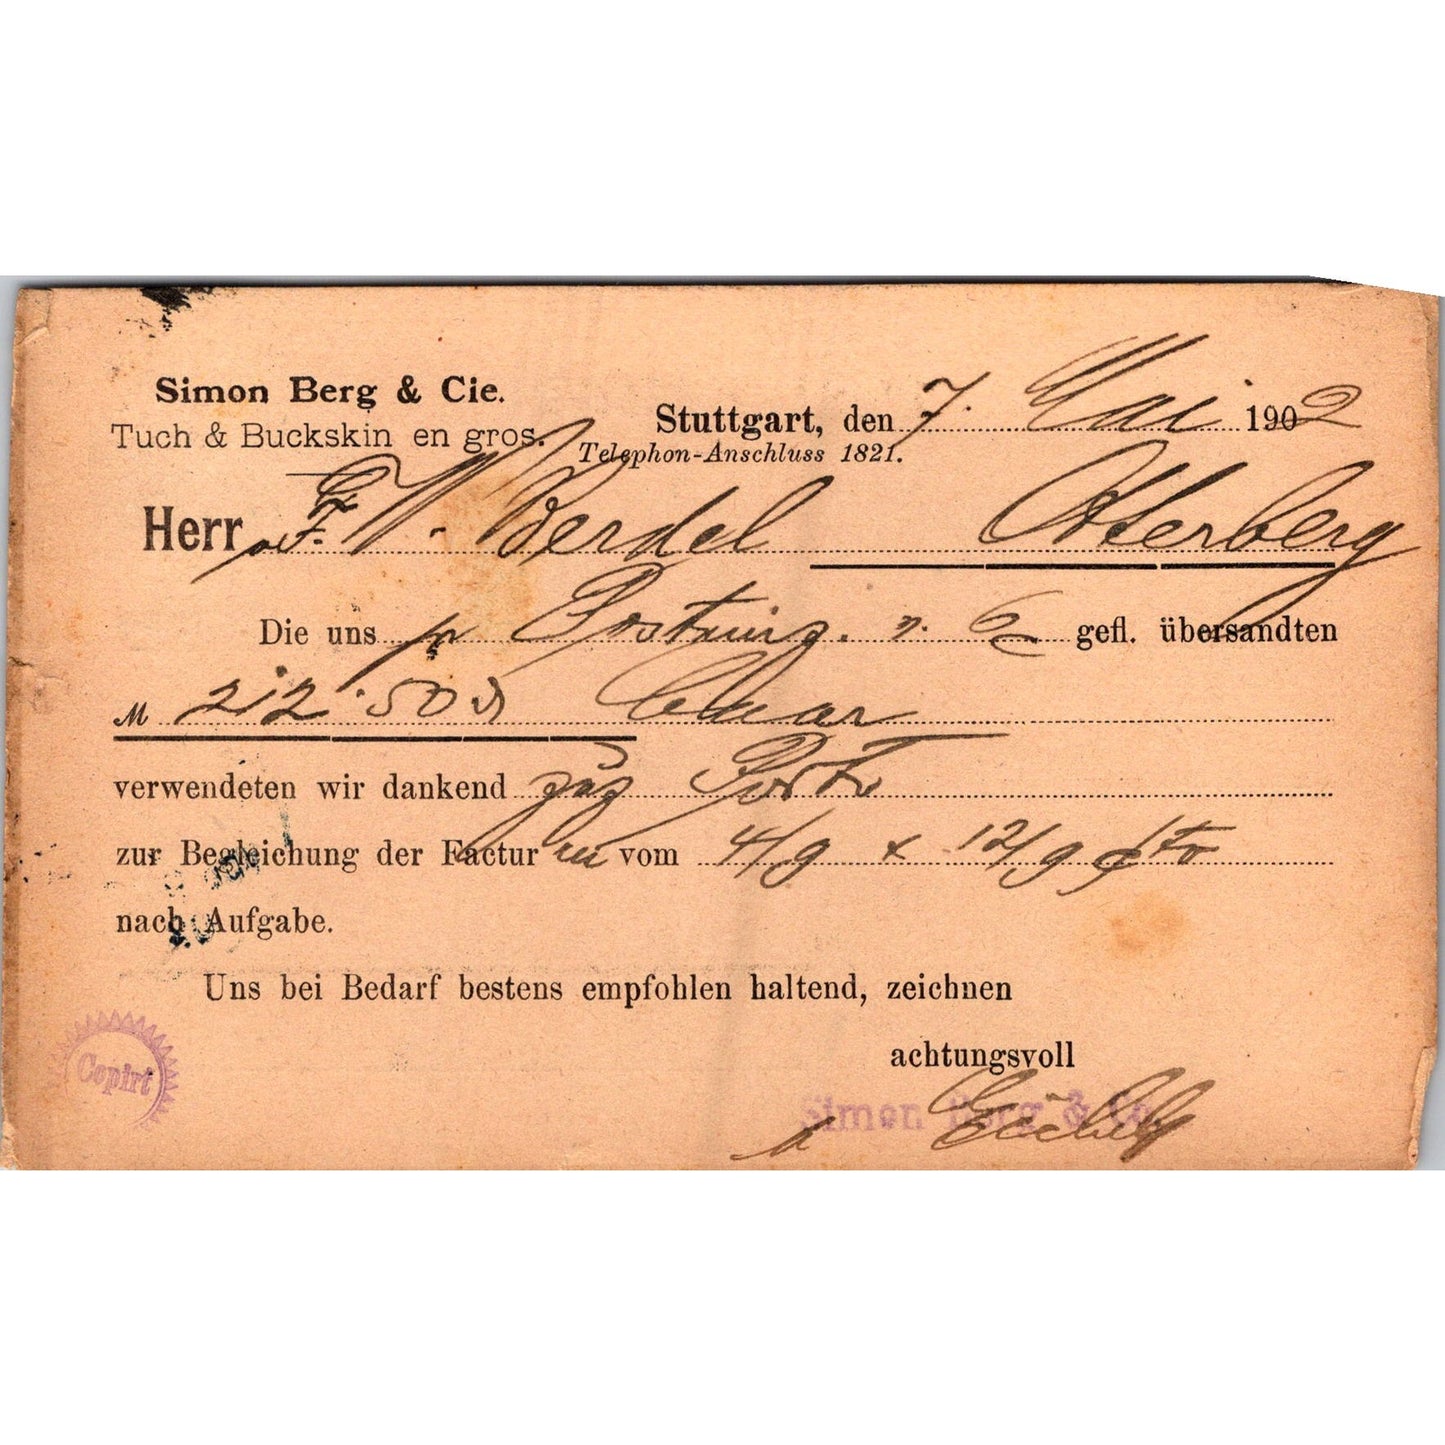 Simon Berg & Cie.
Tuch & Buckskin en gros.
Stuttgart, den 7. Mai 1902
Telephon-Anschluss 1821.
Herr F. W. Berdel Otterberg
Die uns pr Postanw. v. 6 gefl. übersandten
M 212.50 ₰
verwendeten wir dankend zuz Porto
zur Begleichung der Factur en vom 4/9 & 12/9 cto
nach Aufgabe.
Uns bei Bedarf bestens empfohlen haltend, zeichnen
achtungsvoll
Simon Berg & Co.
Copirt